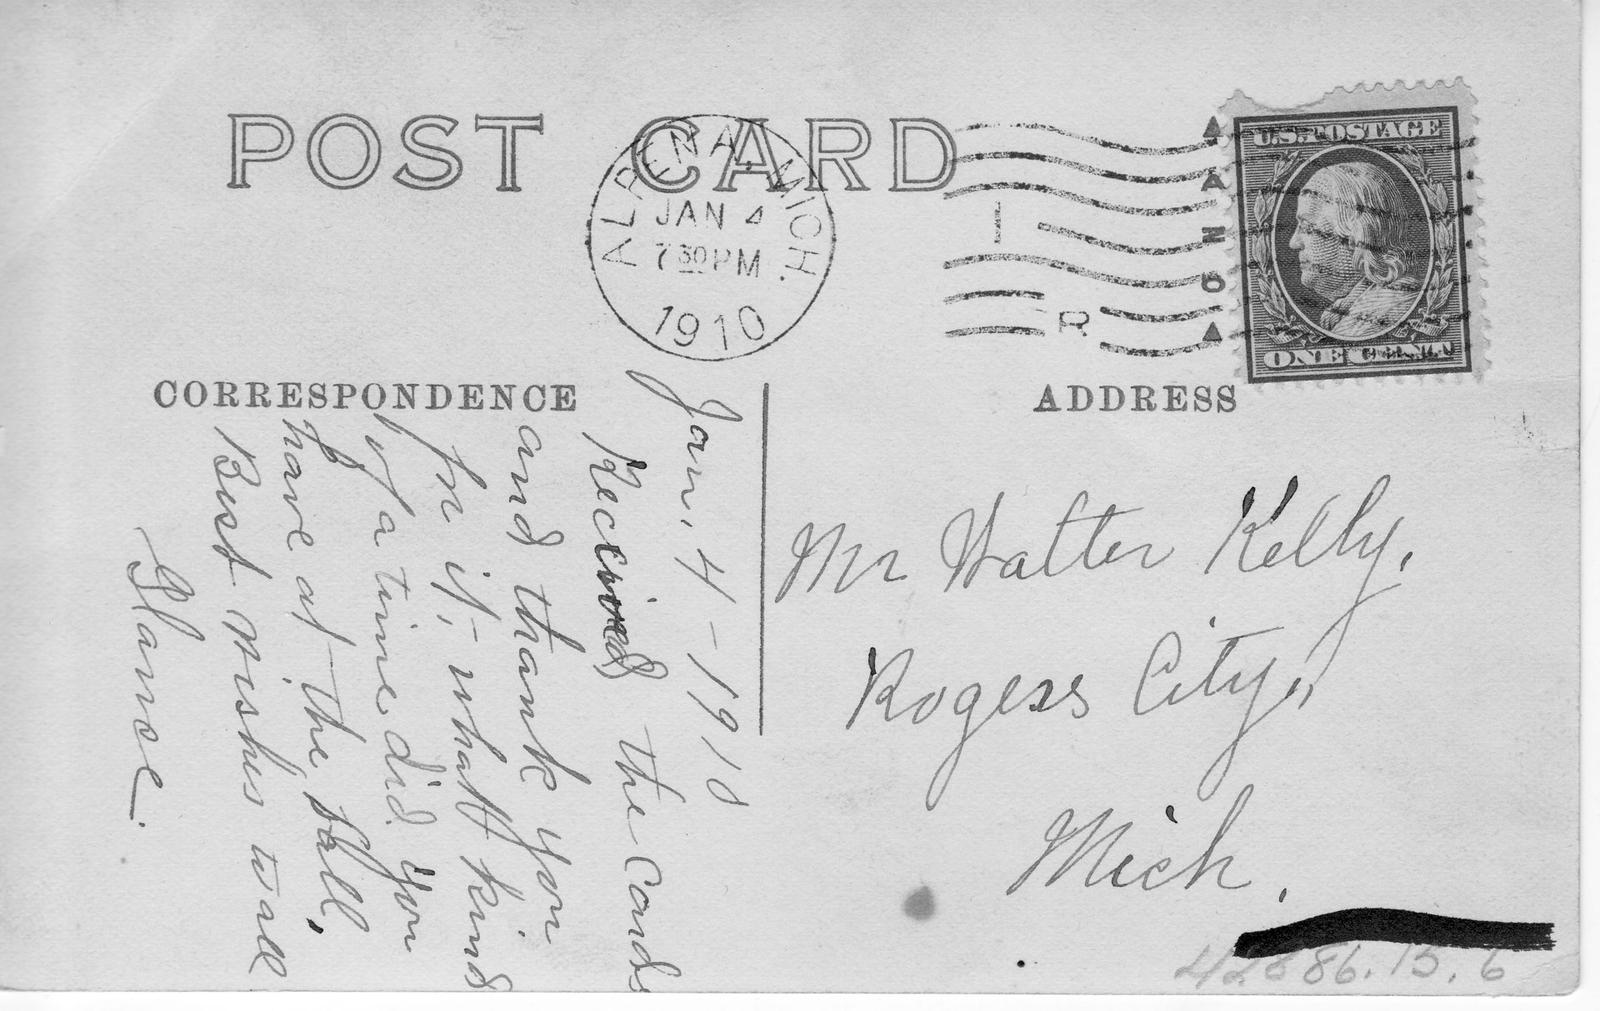 POST CARD
ALPENA, MICH.
JAN 4
7 30 PM
1910
1
R
U.S. POSTAGE
ONE CENT
CORRESPONDENCE
ADDRESS
Jan. 4 - 1910
Received the Cards
and thank you
for it, - what kind
of a time did you
have at the ball,
Best wishes to all
Mr Walter Kelly,
Rogers City,
Mich.
42686.15.6